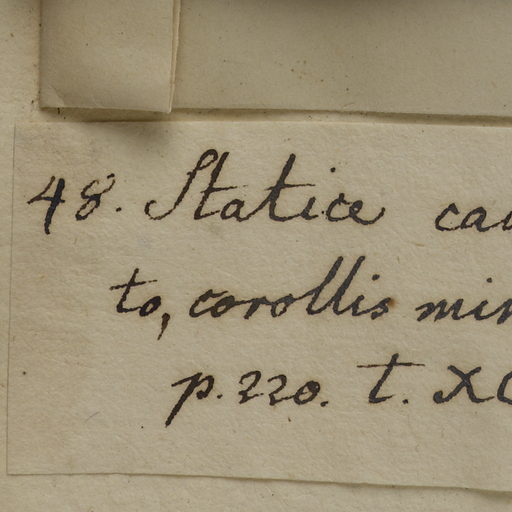 48. Statice cau
to, corollis min
p. 220. t. XC